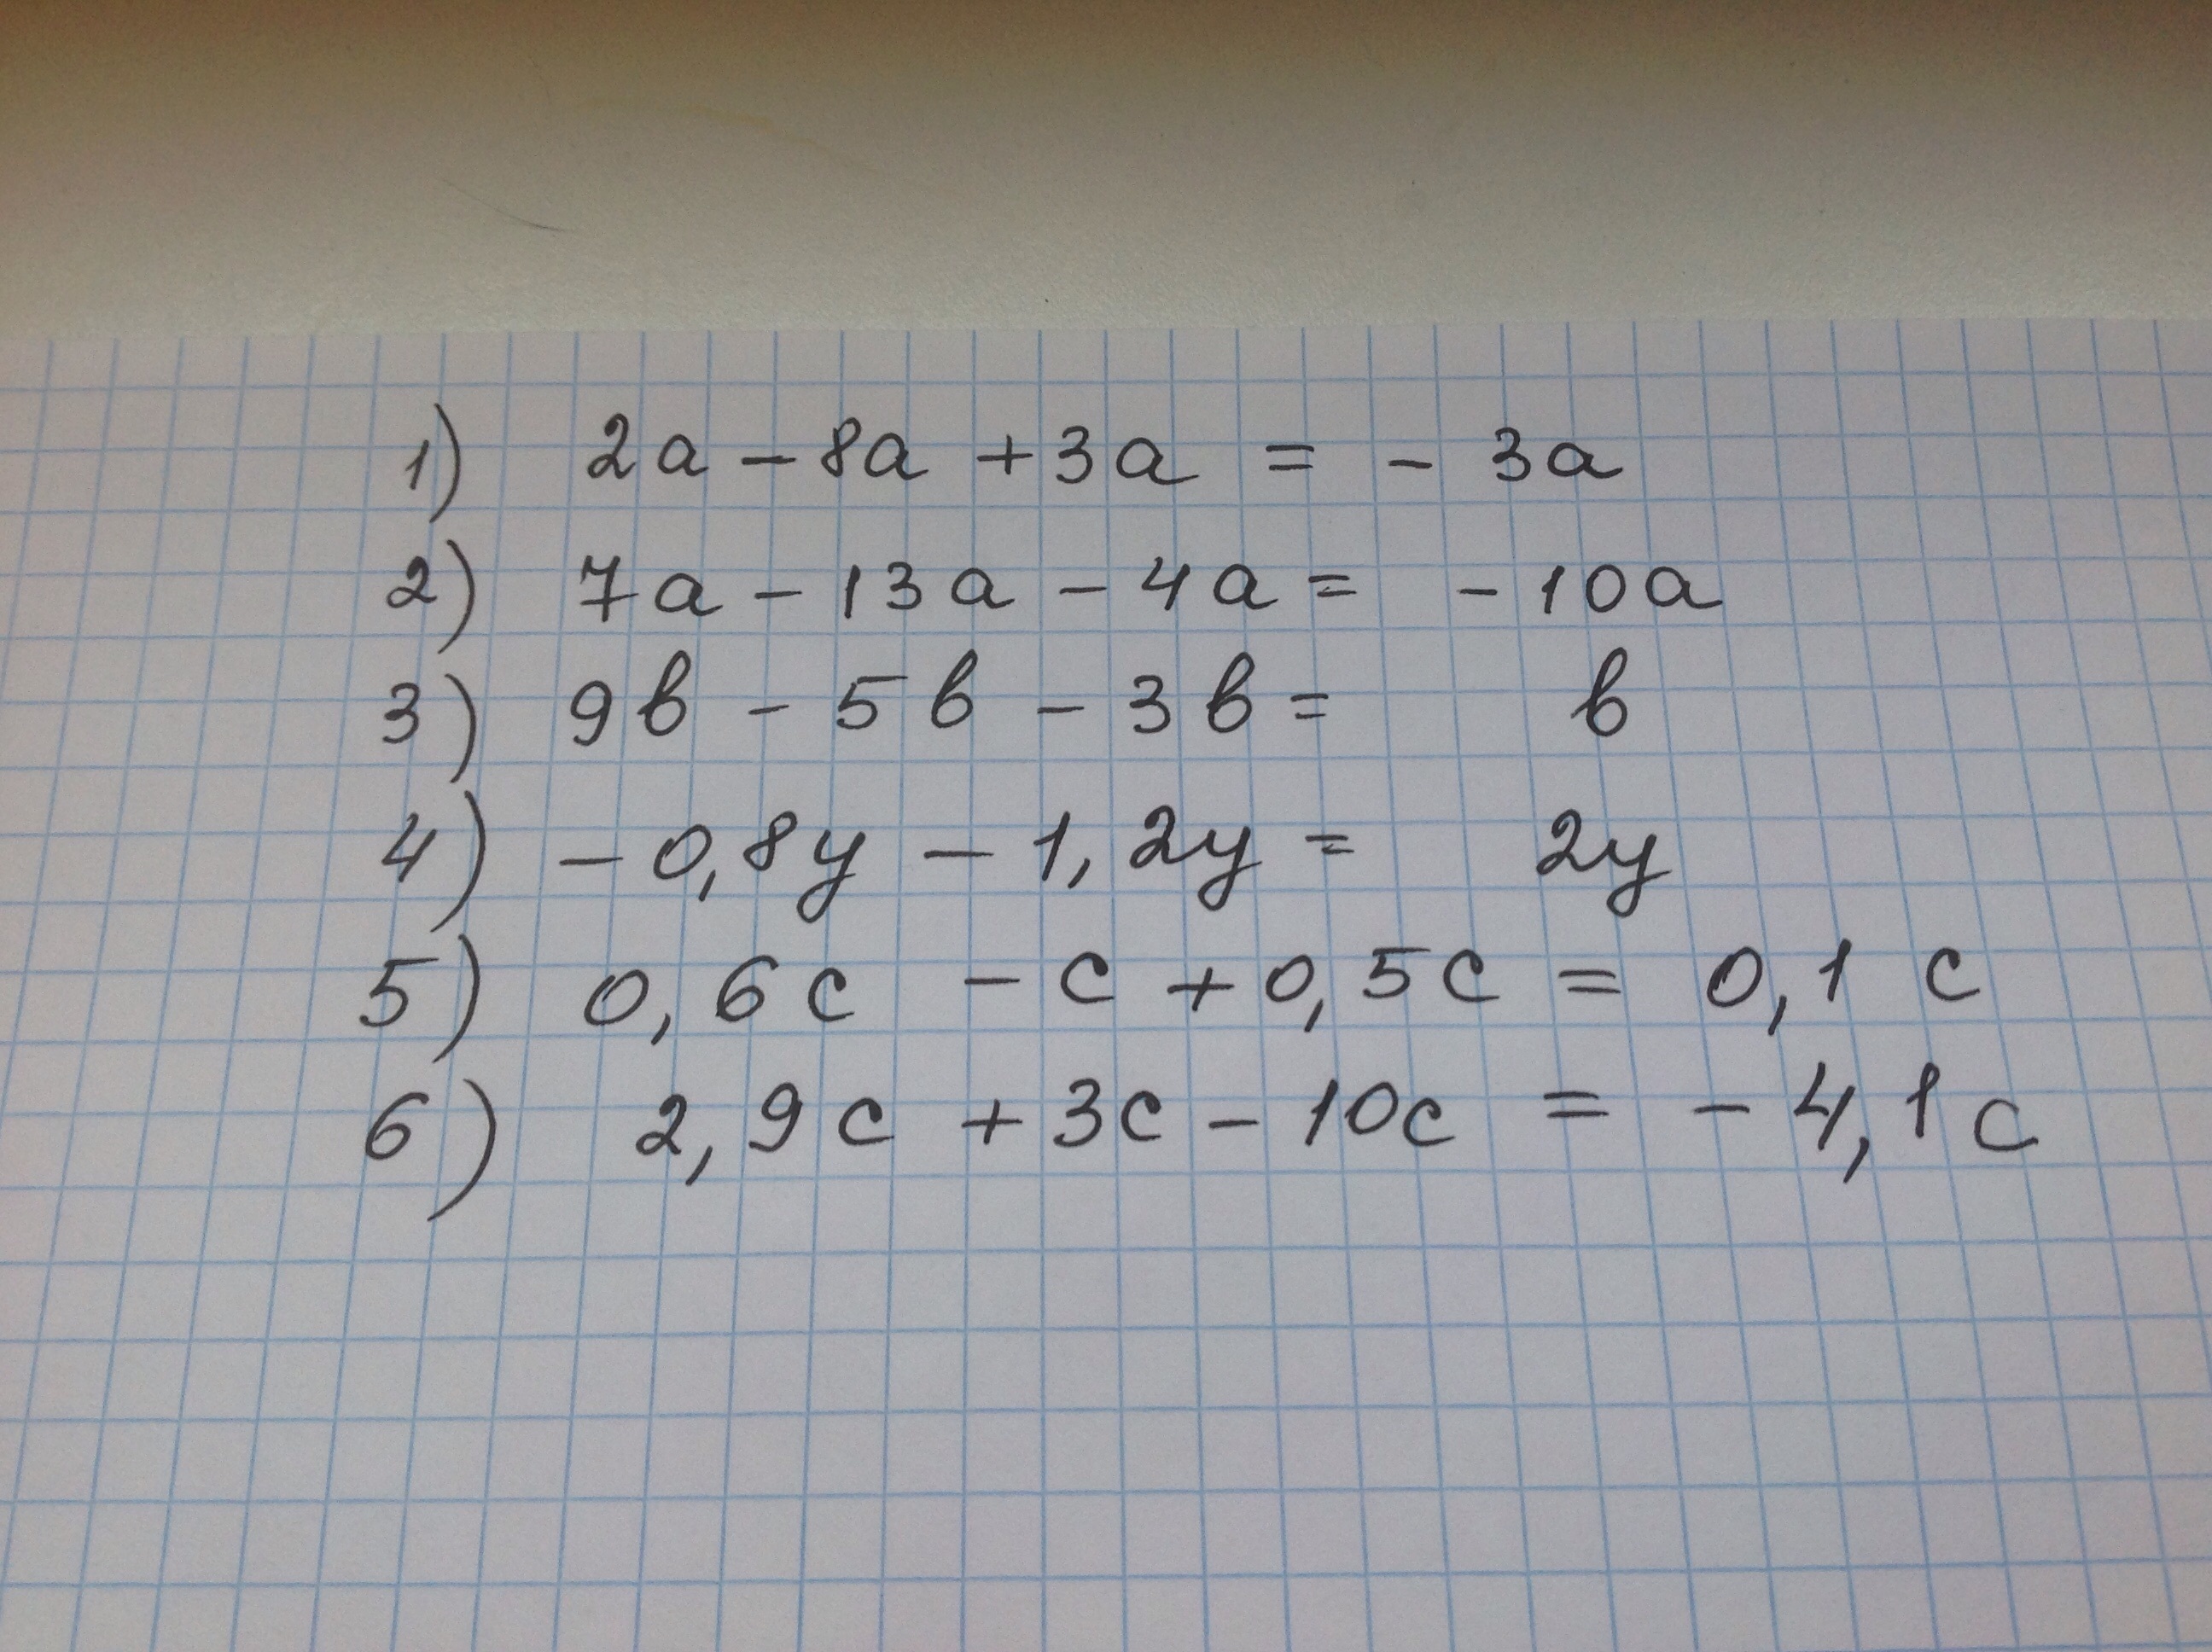 1) 2a - 8a + 3a = - 3a
2) 7a - 13a - 4a = - 10a
3) 9b - 5b - 3b = b
4) - 0,8y - 1,2y = 2y
5) 0,6c - c + 0,5c = 0,1 c
6) 2,9c + 3c - 10c = - 4,1c